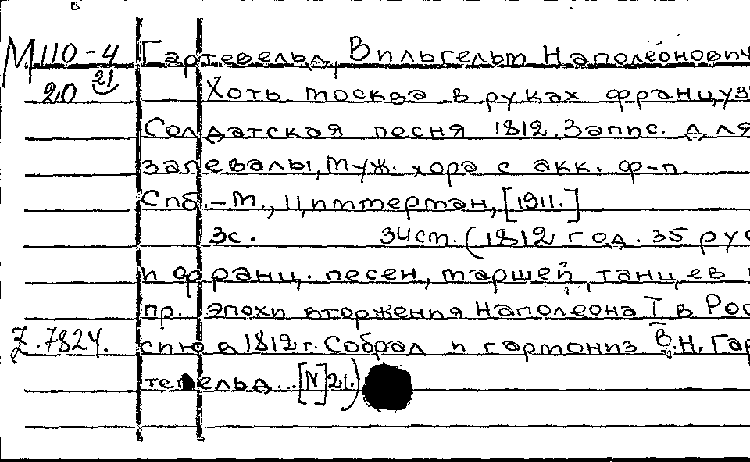 М110-4 Гартевельд, Вильгельм Наполеонович
20 21 Хоть Москва в руках француз
Солдатская песня 1812. Запис. для
запевалы, муж. хора с акк. ф-п.
Спб.-М., Циммерман, [1911.]
3с. 34см. (1812 год. 35 рус
и франц. песен, маршей, танцев и
пр. эпохи вторжения Наполеона I в Рос
Z.7824. сию в 1812 г. Собрал и гармониз В.Н. Гар
тевельд. [N] 21.)